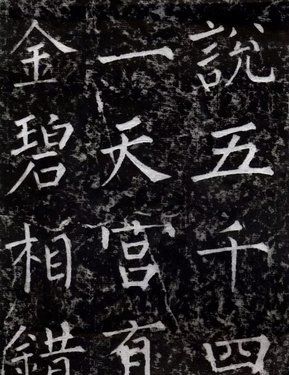 說五千四
一天宮有
金碧相錯